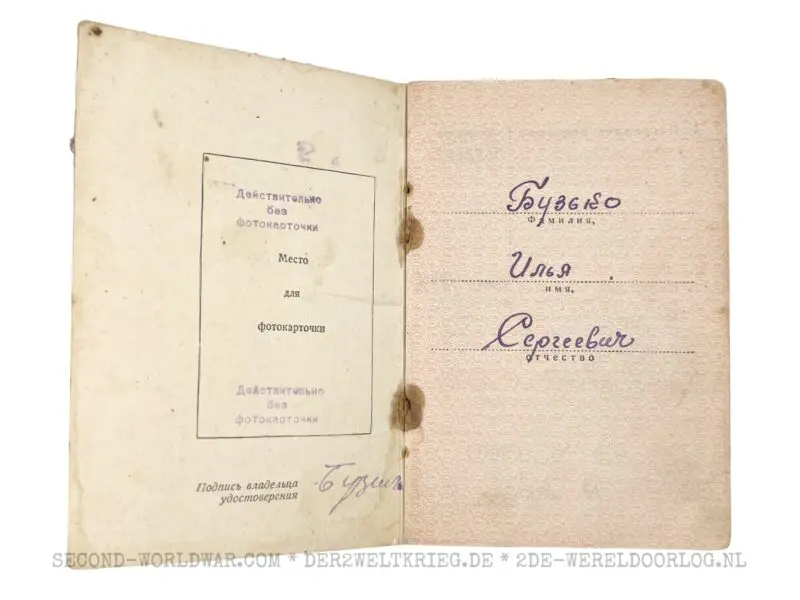 Действительно
без
фотокарточки
Место
для
фотокарточки
Действительно
без
фотокарточки
Подпись владельца
удостоверения
Бузько
фамилия,
Илья
имя,
Сергеевич
отчество
SECOND-WORLDWAR.COM * DER2WELTKRIEG.DE * 2DE-WERELDOORLOG.NL